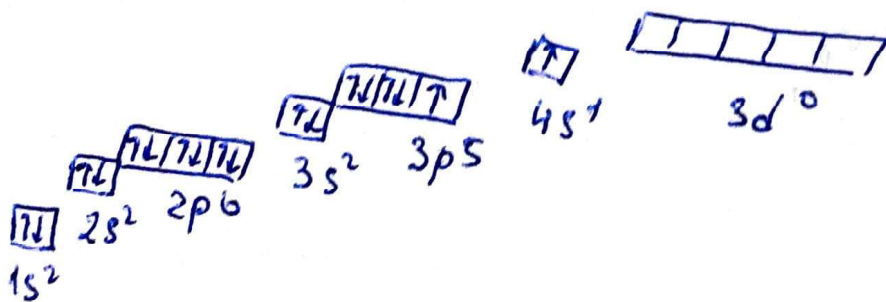 1s²
2s²
2p6
3s²
3p5
4s¹
3d⁰